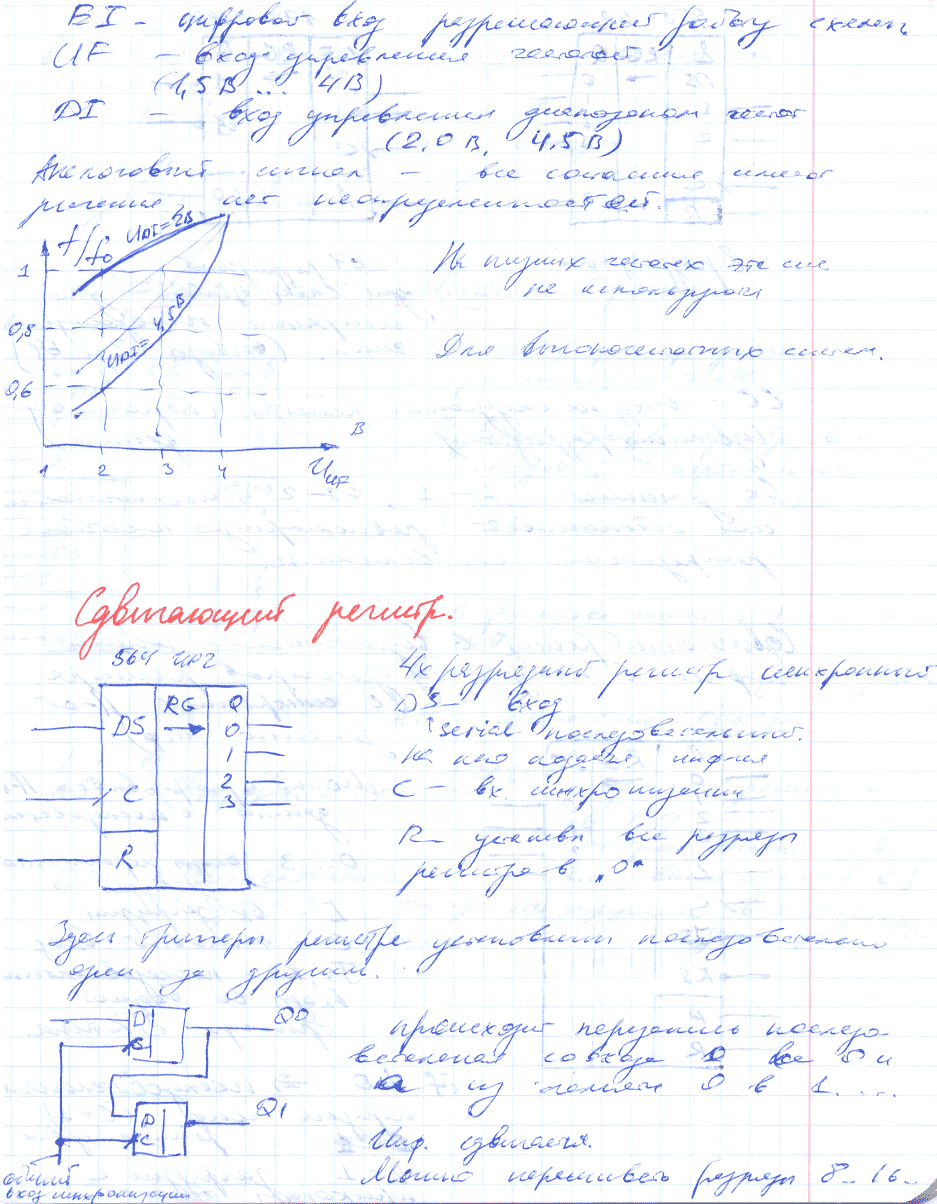 EI - цифровой вход разрешающий работу схемы
UF - вход управления частотой
(1,5 В ... 4 В)
DI - вход управления диапазоном частот
(2,0 В, 4,5 В)
Аналоговый сигнал - все состояния имеют
решение, нет неопределенностей.
f/f₀
U_DI=2В
U_DI=4,5В
1
0,8
0,6
1 2 3 4
В
U_UF
На низких частотах эти
не используют
Для высокочастотных систем.
Сдвигающий регистр.
564 ИР2
DS
C
R
RG
Q
0
1
2
3
4х разрядный регистр синхронный
DS - вход
serial последовательный.
На него подается
C - вх. синхронизации
R - установки все разряды
регистра в "0"
Здесь триггеры регистра установлены последовательно
один за другим.
D
C
Q0
D
C
Q1
общий
вход синхронизации
происходит перезапись последо
вательная со входа D
из 0 в 1 ....
Инф. сдвигается.
Можно разряды 8 - 16 -